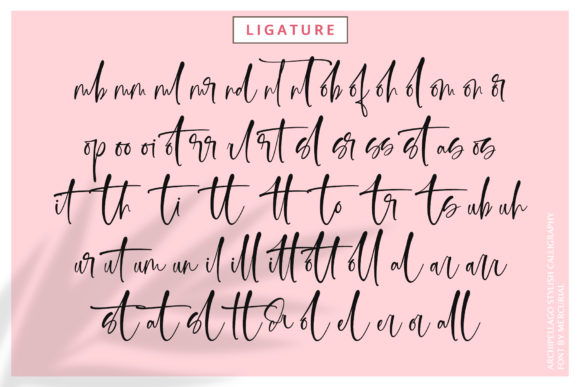 LIGATURE
mb mm ml mr nd nt nt ob of oh ol om on or
op oo oi ot rr rl rt sl sr ss st as os
it th ti tt tt to tr ts ub uh
ur ut um un il ill itt ott oll al ar arr
st at sl tt ol el er or all
ARCHIPELLAGO STYLISH CALLIGRAPHY
FONT BY MERCURIAL